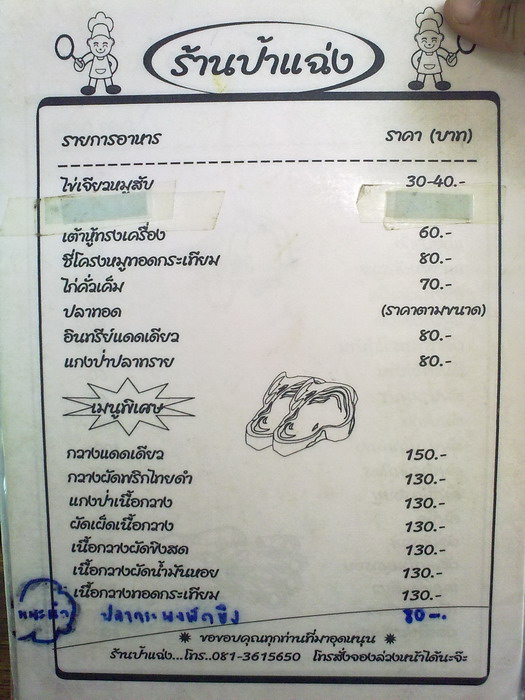 ร้านป้าแฉ่ง
รายการอาหาร ราคา (บาท)
ไข่เจียวหมูสับ 30-40.-
เต้าหู้ทรงเครื่อง 60.-
ซี่โครงหมูทอดกระเทียม 80.-
ไก่คั่วเค็ม 70.-
ปลาทอด (ราคาตามขนาด)
อินทรีย์แดดเดียว 80.-
แกงป่าปลาทราย 80.-
เมนูพิเศษ
กวางแดดเดียว 150.-
กวางผัดพริกไทยดำ 130.-
แกงป่าเนื้อกวาง 130.-
ผัดเผ็ดเนื้อกวาง 130.-
เนื้อกวางผัดขิงสด 130.-
เนื้อกวางผัดน้ำมันหอย 130.-
เนื้อกวางทอดกระเทียม 130.-
แนะนำ ปลากะพงผัดขิง 80.-
ขอขอบคุณทุกท่านที่มาอุดหนุน
ร้านป้าแฉ่ง...โทร..081-3615650 โทรสั่งจองล่วงหน้าได้นะจ๊ะ